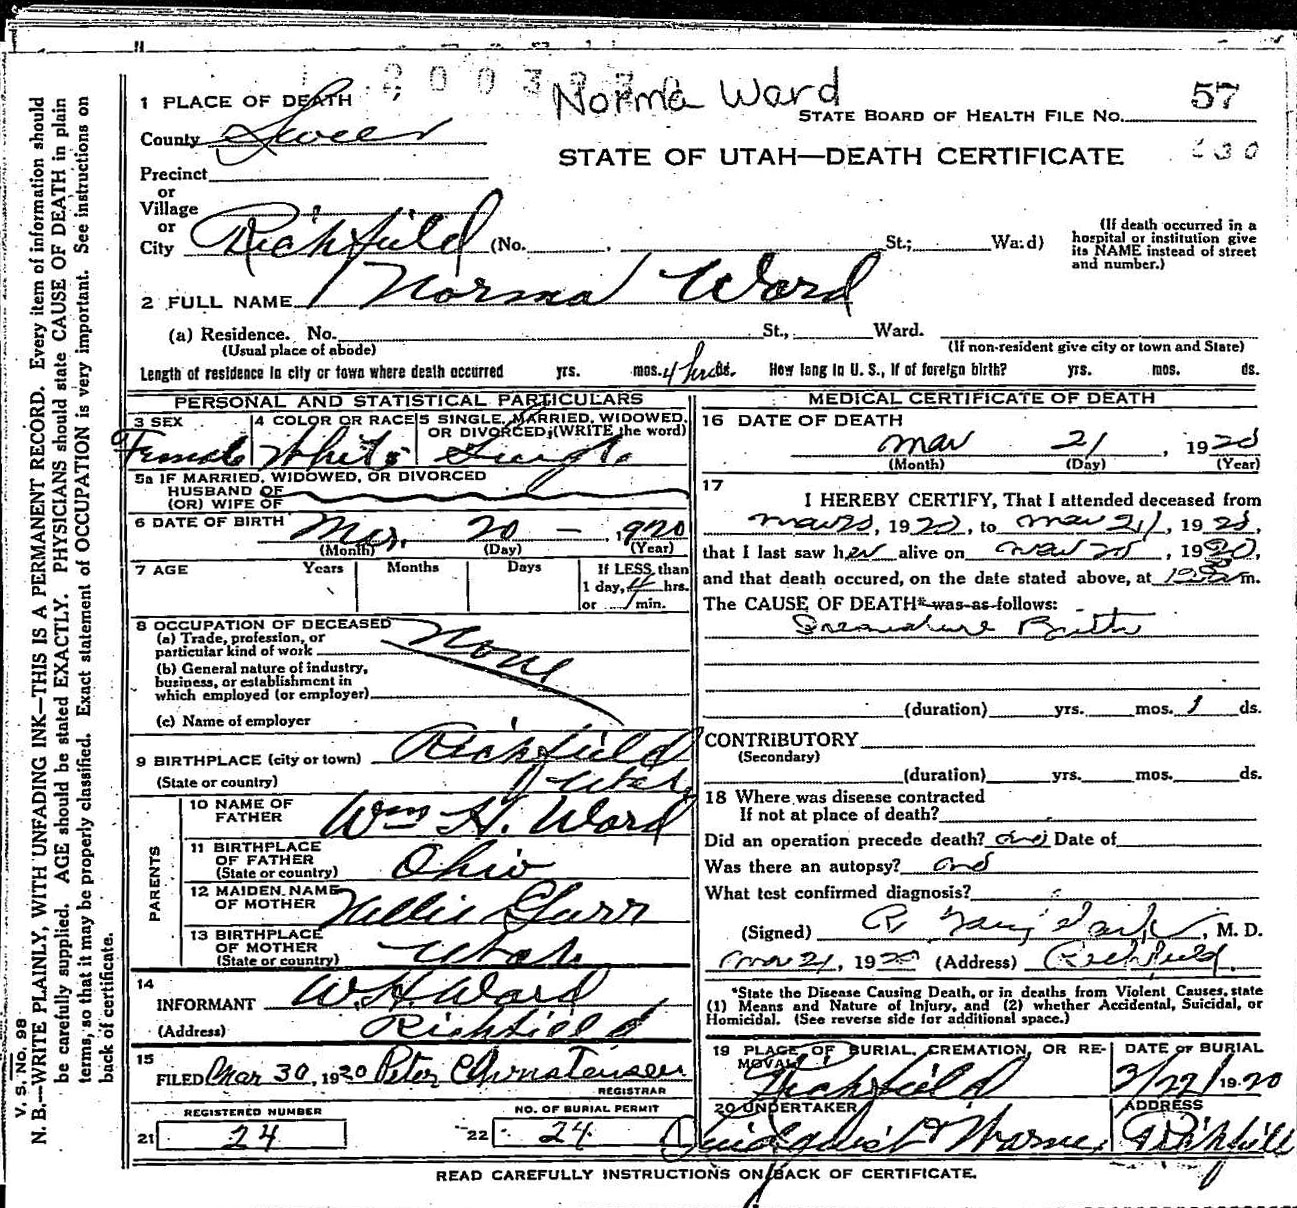 Norma Ward
57
STATE BOARD OF HEALTH FILE No.
STATE OF UTAH—DEATH CERTIFICATE
1 PLACE OF DEATH
County Sevier
Precinct
or
Village
or
City Richfield (No. , St.; Ward)
(If death occurred in a
hospital or institution give
its NAME instead of street
and number.)
2 FULL NAME Norma Ward
(a) Residence. No. St., Ward.
(Usual place of abode) (If non-resident give city or town and State)
Length of residence in city or town where death occurred yrs. mos. 4 hrs ds. How long in U. S., if of foreign birth? yrs. mos. ds.
PERSONAL AND STATISTICAL PARTICULARS
3 SEX Female
4 COLOR OR RACE White
5 SINGLE, MARRIED, WIDOWED,
OR DIVORCED, (WRITE the word) Single
5a IF MARRIED, WIDOWED, OR DIVORCED
HUSBAND OF
(OR) WIFE OF
6 DATE OF BIRTH Mar. 20 — , 1920
(Month) (Day) (Year)
7 AGE Years Months Days If LESS than
1 day, 4 hrs.
or min.
8 OCCUPATION OF DECEASED
(a) Trade, profession, or
particular kind of work None
(b) General nature of industry,
business, or establishment in
which employed (or employer)
(c) Name of employer
9 BIRTHPLACE (city or town) Richfield
(State or country) Utah
PARENTS
10 NAME OF
FATHER Wm H. Ward
11 BIRTHPLACE
OF FATHER
(State or country) Ohio
12 MAIDEN NAME
OF MOTHER Nellie
13 BIRTHPLACE
OF MOTHER
(State or country) Utah
14
INFORMANT W. H. Ward
(Address) Richfield
15
FILED Mar 30, 1920 Peter Christensen
REGISTRAR
REGISTERED NUMBER
21 24
NO. OF BURIAL PERMIT
22 24
MEDICAL CERTIFICATE OF DEATH
16 DATE OF DEATH
Mar 21, 1920
(Month) (Day) (Year)
17
I HEREBY CERTIFY, That I attended deceased from
Mar 20, 1920, to Mar 21, 1920,
that I last saw her alive on Mar 20, 1920,
and that death occured, on the date stated above, at m.
The CAUSE OF DEATH* was as follows:
Premature Birth
(duration) yrs. mos. 1 ds.
CONTRIBUTORY
(Secondary)
(duration) yrs. mos. ds.
18 Where was disease contracted
If not at place of death?
Did an operation precede death? Date of
Was there an autopsy?
What test confirmed diagnosis?
(Signed) , M. D.
Mar 21, 1920 (Address) Richfield
*State the Disease Causing Death, or in deaths from Violent Causes, state
(1) Means and Nature of Injury, and (2) whether Accidental, Suicidal, or
Homicidal. (See reverse side for additional space.)
19 PLACE OF BURIAL, CREMATION, OR RE-
MOVAL Richfield
DATE OF BURIAL
3/22/1920
20 UNDERTAKER
ADDRESS
Richfield
READ CAREFULLY INSTRUCTIONS ON BACK OF CERTIFICATE.
V. S. No. 98
N. B.—WRITE PLAINLY, WITH UNFADING INK—THIS IS A PERMANENT RECORD. Every item of information should
be carefully supplied. AGE should be stated EXACTLY. PHYSICIANS should state CAUSE OF DEATH in plain
terms, so that it may be properly classified. Exact statement of OCCUPATION is very important. See instructions on
back of certificate.